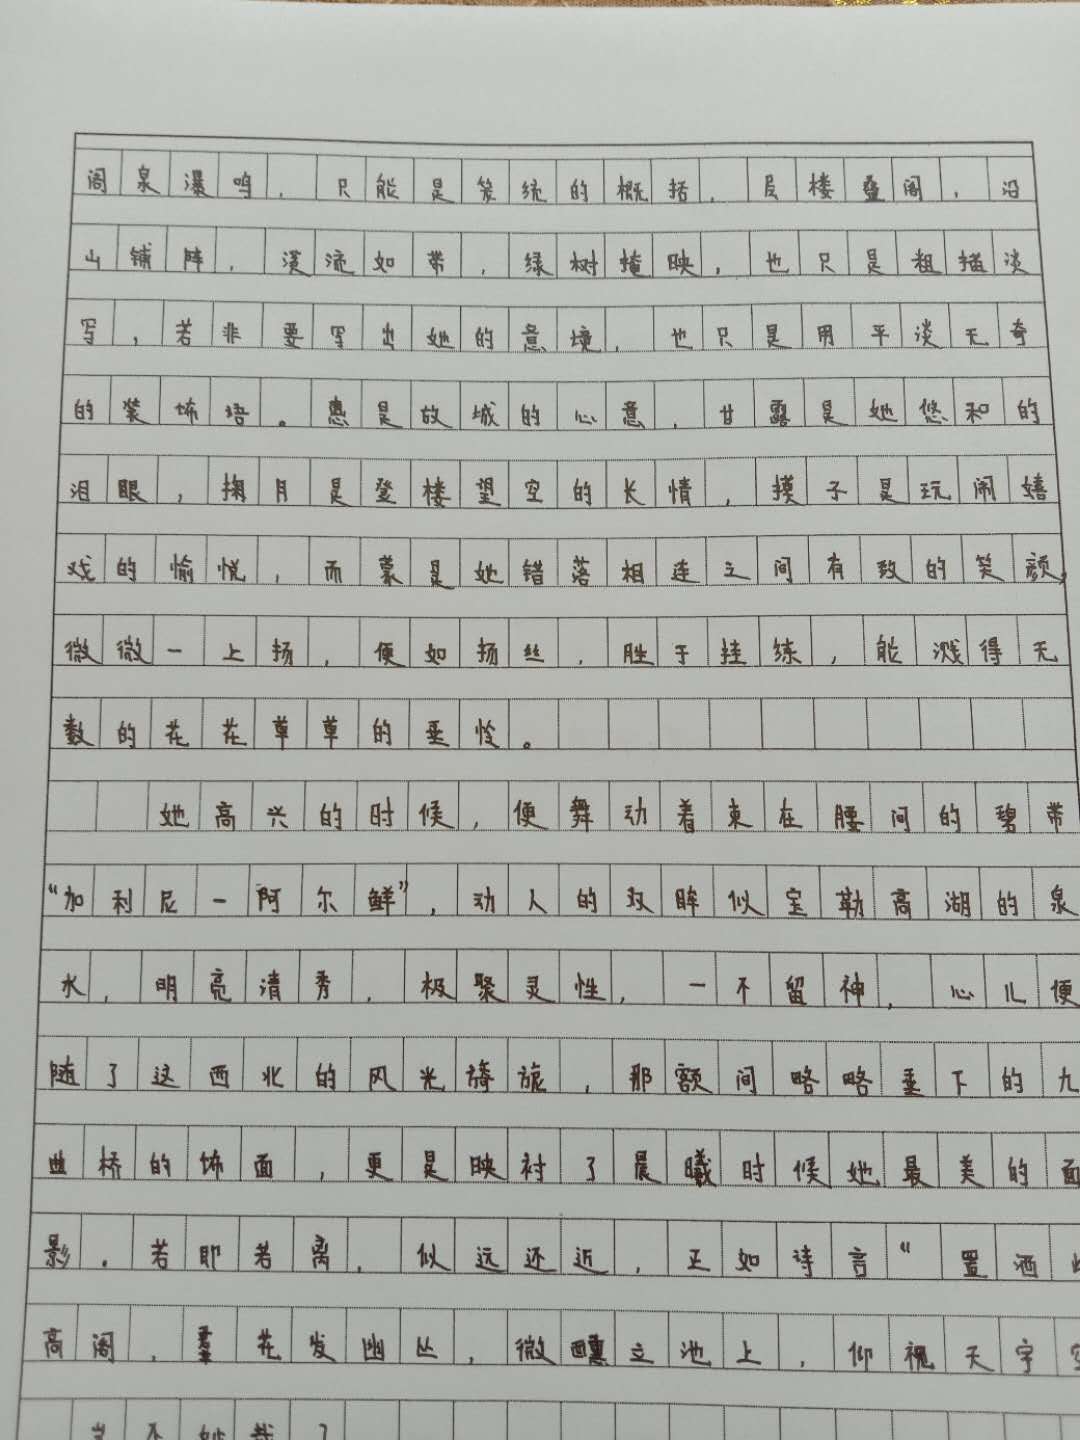 阁泉瀑鸣，只能是笼统的概括，层楼叠阁，沿
山铺阵，溪流如带，绿树掩映，也只是粗描淡
写，若非要写出她的意境，也只是用平淡无奇
的装饰语。惠是故城的心意，甘露是她悠和的
泪眼，掬月是登楼望空的长情，摸子是玩闹嬉
戏的愉悦，而蒙是她错落相连之间有致的笑颜，
微微一上扬，便如扬丝，胜于挂练，能溅得无
数的花花草草的垂怜。
她高兴的时候，便舞动着束在腰间的碧带
“加利尼一阿尔鲜”，动人的双眸似宝勒高湖的泉
水，明亮清秀，极聚灵性，一不留神，心儿便
随了这西北的风光旖旎，那额间略略垂下的九
曲桥的饰面，更是映衬了晨曦时候她最美的面
影。若即若离，似远还近，正如诗言“置酒
高阁，群花发幽丛，微醺立池上，仰视天宇空
岂不妙哉？